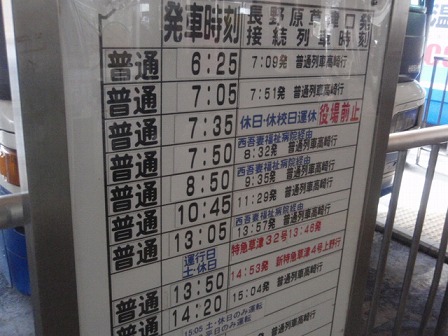 発車時刻 長野原草津口発
接続列車時刻
普通 6:25 7:09発 普通列車高崎行
普通 7:05 7:51発 普通列車高崎行
普通 7:35 休日・休校日運休 役場前止
普通 7:50 西吾妻福祉病院経由
8:32発 普通列車高崎行
普通 8:50 西吾妻福祉病院経由
9:35発 普通列車高崎行
普通 10:45 11:29発 普通列車高崎行
普通 13:05 西吾妻福祉病院経由
13:57発 普通列車高崎行
運行日
土・休日 特急草津32号13:46発
普通 13:50 14:53発 新特急草津4号上野行
普通 14:20 15:04発 普通列車高崎行
15:05 土・休日のみ運転
平日のみ運転
温